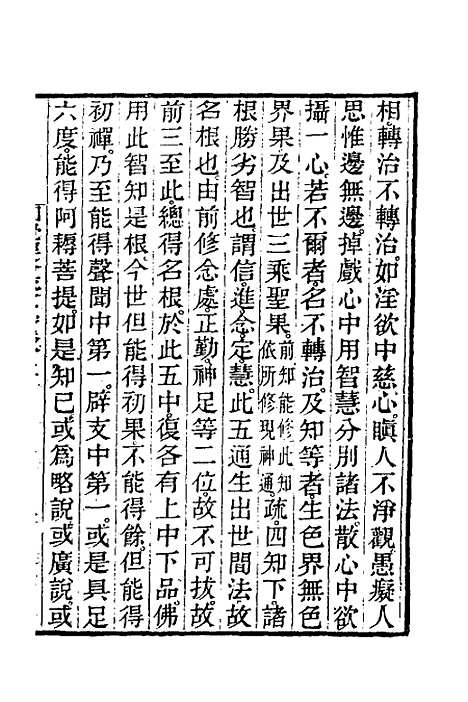 相。轉治不轉治。如淫欲中慈心。瞋人不淨觀。愚癡人
思惟邊無邊。掉戲心中用智慧分別諸法。散心中欲
攝一心。若不爾者。名不轉治。及知等者。生色界無色
界果。及出世三乘聖果。前知能修。此知依所修現神通。疏。四知下諸
根勝劣智也。謂信。進。念。定。慧。此五通生出世間法。故
名根也。由前修念處。正勤。神足等二位。故不可拔。故
前三至此。總得名根。於此五中。復各有上中下品。佛
用此智知是根。今世但能得初果。不能得餘。但能得
初禪。乃至能得聲聞中第一。辟支中第一。或是具足
六度。能得阿耨菩提。如是知已。或爲略說。或廣說。或